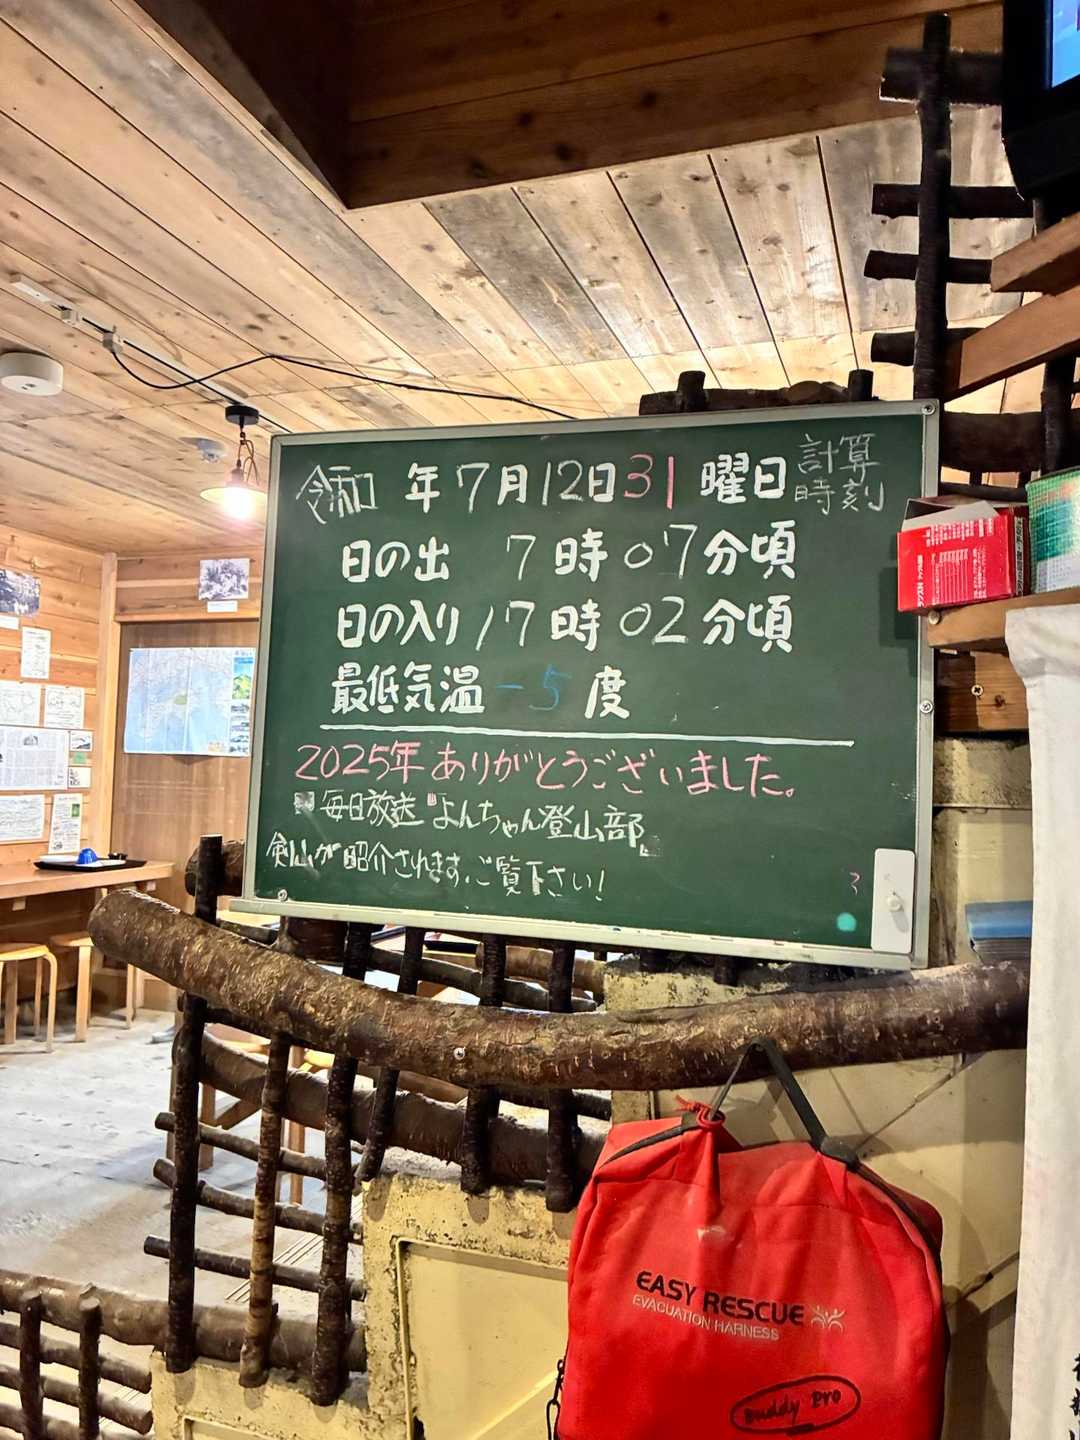 令和 年7月12日31曜日 計算時刻
日の出 7時07分頃
日の入り17時02分頃
最低気温 -5度
2025年ありがとうございました。
毎日放送『よんちゃん登山部』
剣山が紹介されます。ご覧下さい!
EASY RESCUE
EVACUATION HARNESS
Buddy Pro